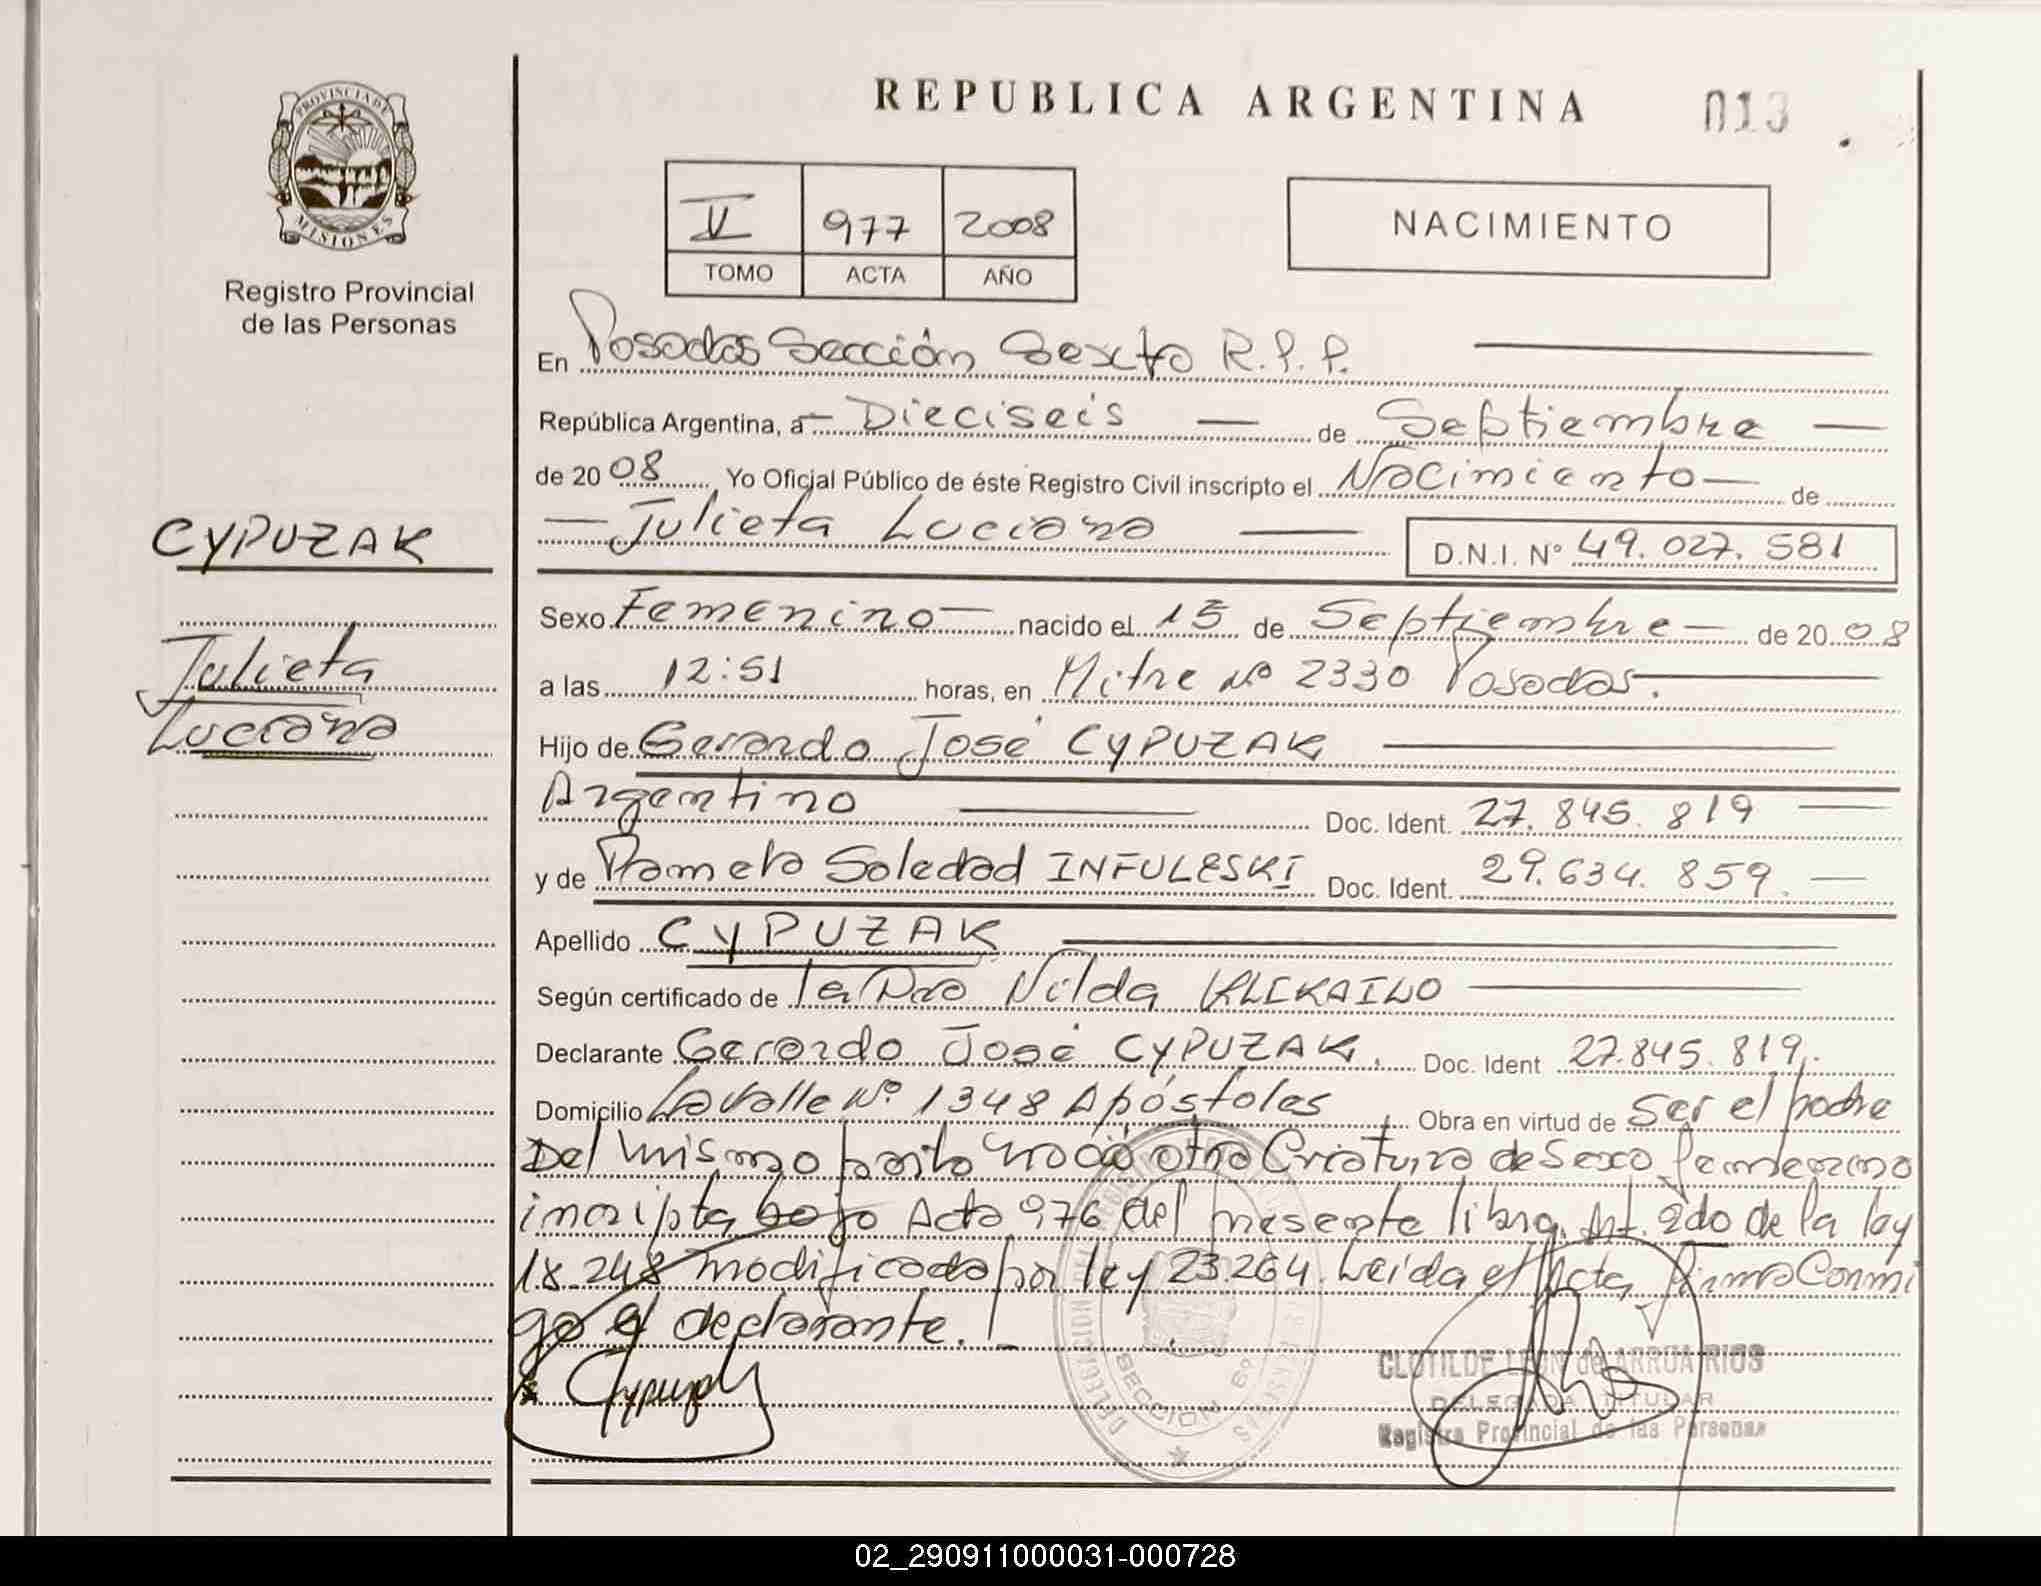 REPUBLICA ARGENTINA
013
PROVINCIA DE
MISIONES
Registro Provincial
de las Personas
V 977 2008
TOMO ACTA AÑO
NACIMIENTO
En Posadas Sección Sexta R.P.P.
República Argentina, a Dieciseis de Septiembre
de 2008 Yo Oficial Público de éste Registro Civil inscripto el Nacimiento de
Julieta Luciana D.N.I. Nº 49.027.581
CYPUZAK
Julieta
Luciana
Sexo Femenino nacido el 15 de Septiembre de 2008
a las 12:51 horas, en Mitre Nº 2330 Posadas.
Hijo de Gerardo José CYPUZAK
Argentino Doc. Ident. 27.845.819
y de Pamela Soledad INFULESKI Doc. Ident. 29.634.859.
Apellido CYPUZAK
Según certificado de la Dra Nilda
Declarante Gerardo José CYPUZAK. Doc. Ident 27.845.819.
Domicilio Lavalle Nº 1348 Apóstoles Obra en virtud de Ser el padre
Del mismo parto nació otra Criatura de Sexo femenino
inscripta bajo Acta 976 del presente libro. Art. 2do de la ley
18.248 modificada por ley 23.264. Leída el Acta, firma Conmi
go el declarante.
Cypuzak
SECCION 6º
CLOTILDE LEON de ARRUA RIOS
DELEGADA TITULAR
Registro Provincial de las Personas
02_290911000031-000728